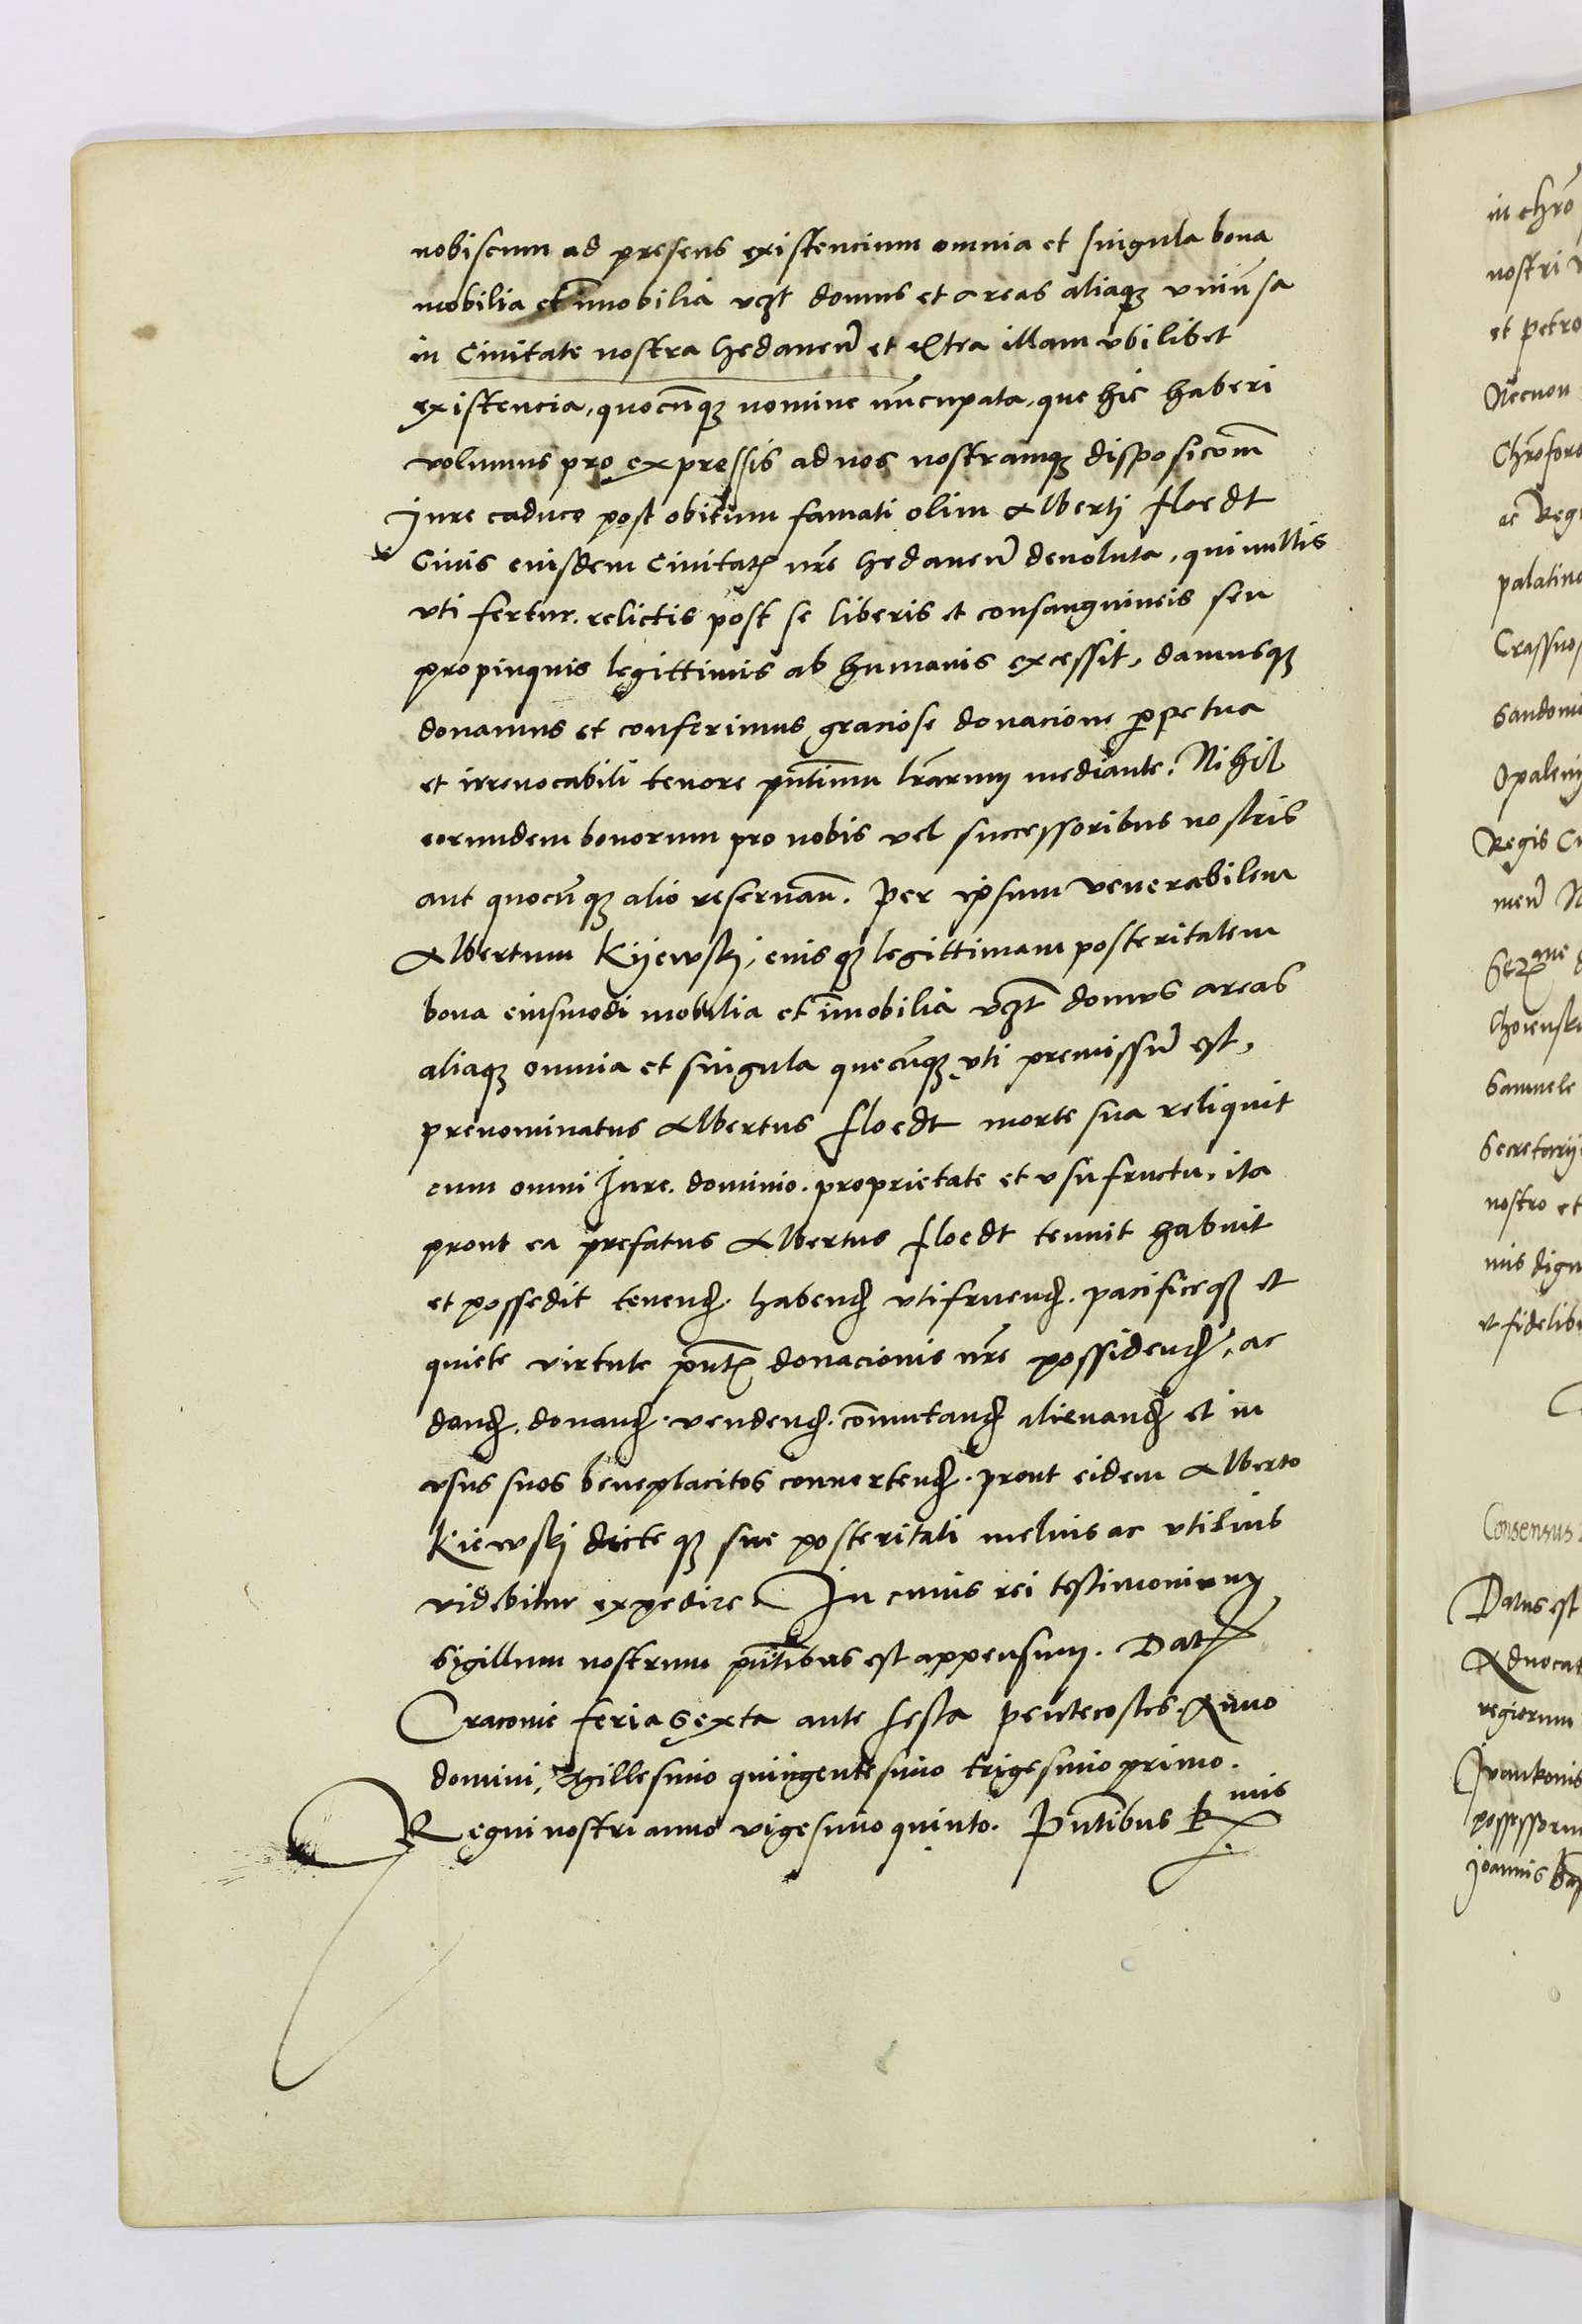 nobiscum ad presens existencium omnia et singula bona
mobilia et īmobilia vzt domus et areas aliaqꝫ vniūsa
in Ciuitate nostra Gedanen̄ et extra illam vbilibet
existencia, quocūqꝫ nomine nūcupata, que hic haberi
volumus pro expressis ad nos nostramqꝫ disposicōm
Jure caduco post obitum famati olim Alberti Floedt
Ciuis eiusdem Ciuitatꝭ nr̄e Gedanen̄ deuoluta, qui nullis
vti fertur. relictis post se liberis et consanguineis seu
propinquis legittimis ab humanis excessit, damusqꝫ
donamus et conferimus graciose donacione ꝑpetua
et irreuocabili tenore pn̄tium lr̄arum mediante. Nihil
eorundem bonorum pro nobis vel successoribus nostris
aut quocūqꝫ alio reseruan̄. Per ipsum venerabilem
Albertum Kijewskj, eiusqꝫ legittimam posteritatem
bona eiusmodi mobilia et īmobilia vzt domos areas
aliaqꝫ omnia et singula quecūqꝫ vti premissū est,
prenominatus Albertus Floedt morte sua reliquit
cum omni Jure. dominio. proprietate et vsufructu, ita
prout ea prefatus Albertus Floedt tenuit habuit
et possedit tenenđ. habenđ vtifruenđ. pacificeqꝫ et
quiete virtute pn̄tꝭ donacionis nr̄e possidenđ, ac
danđ. donanđ. vendenđ. cōmutanđ alienanđ et in
vsus suos beneplacitos conuertenđ. prout eidem Alberto
Kiewskj dicteqꝫ sue posteritati melius ac vtilius
videbitur expedire. In cuius rei testimonium
Sigillum nostrum pn̄tibus est appensum. Datꝭ
Cracouie feria Sexta ante festa Pentecostes. Anno
domini, Millesimo quingentesimo trigesimo primo.
Regni nostri anno vigesimo quinto. Pn̄tibus Rꝭmis
in chrō
nostri
et Petro
Necnon
Chrōforo
ac Reg
palatino
Opaleni
Regis
Samuele
Secretarij
nostro et
nis dign
et fidelib
Consensus
Datus est
Aduocat
regiorum
Iwankonis
possessorum
Joannis